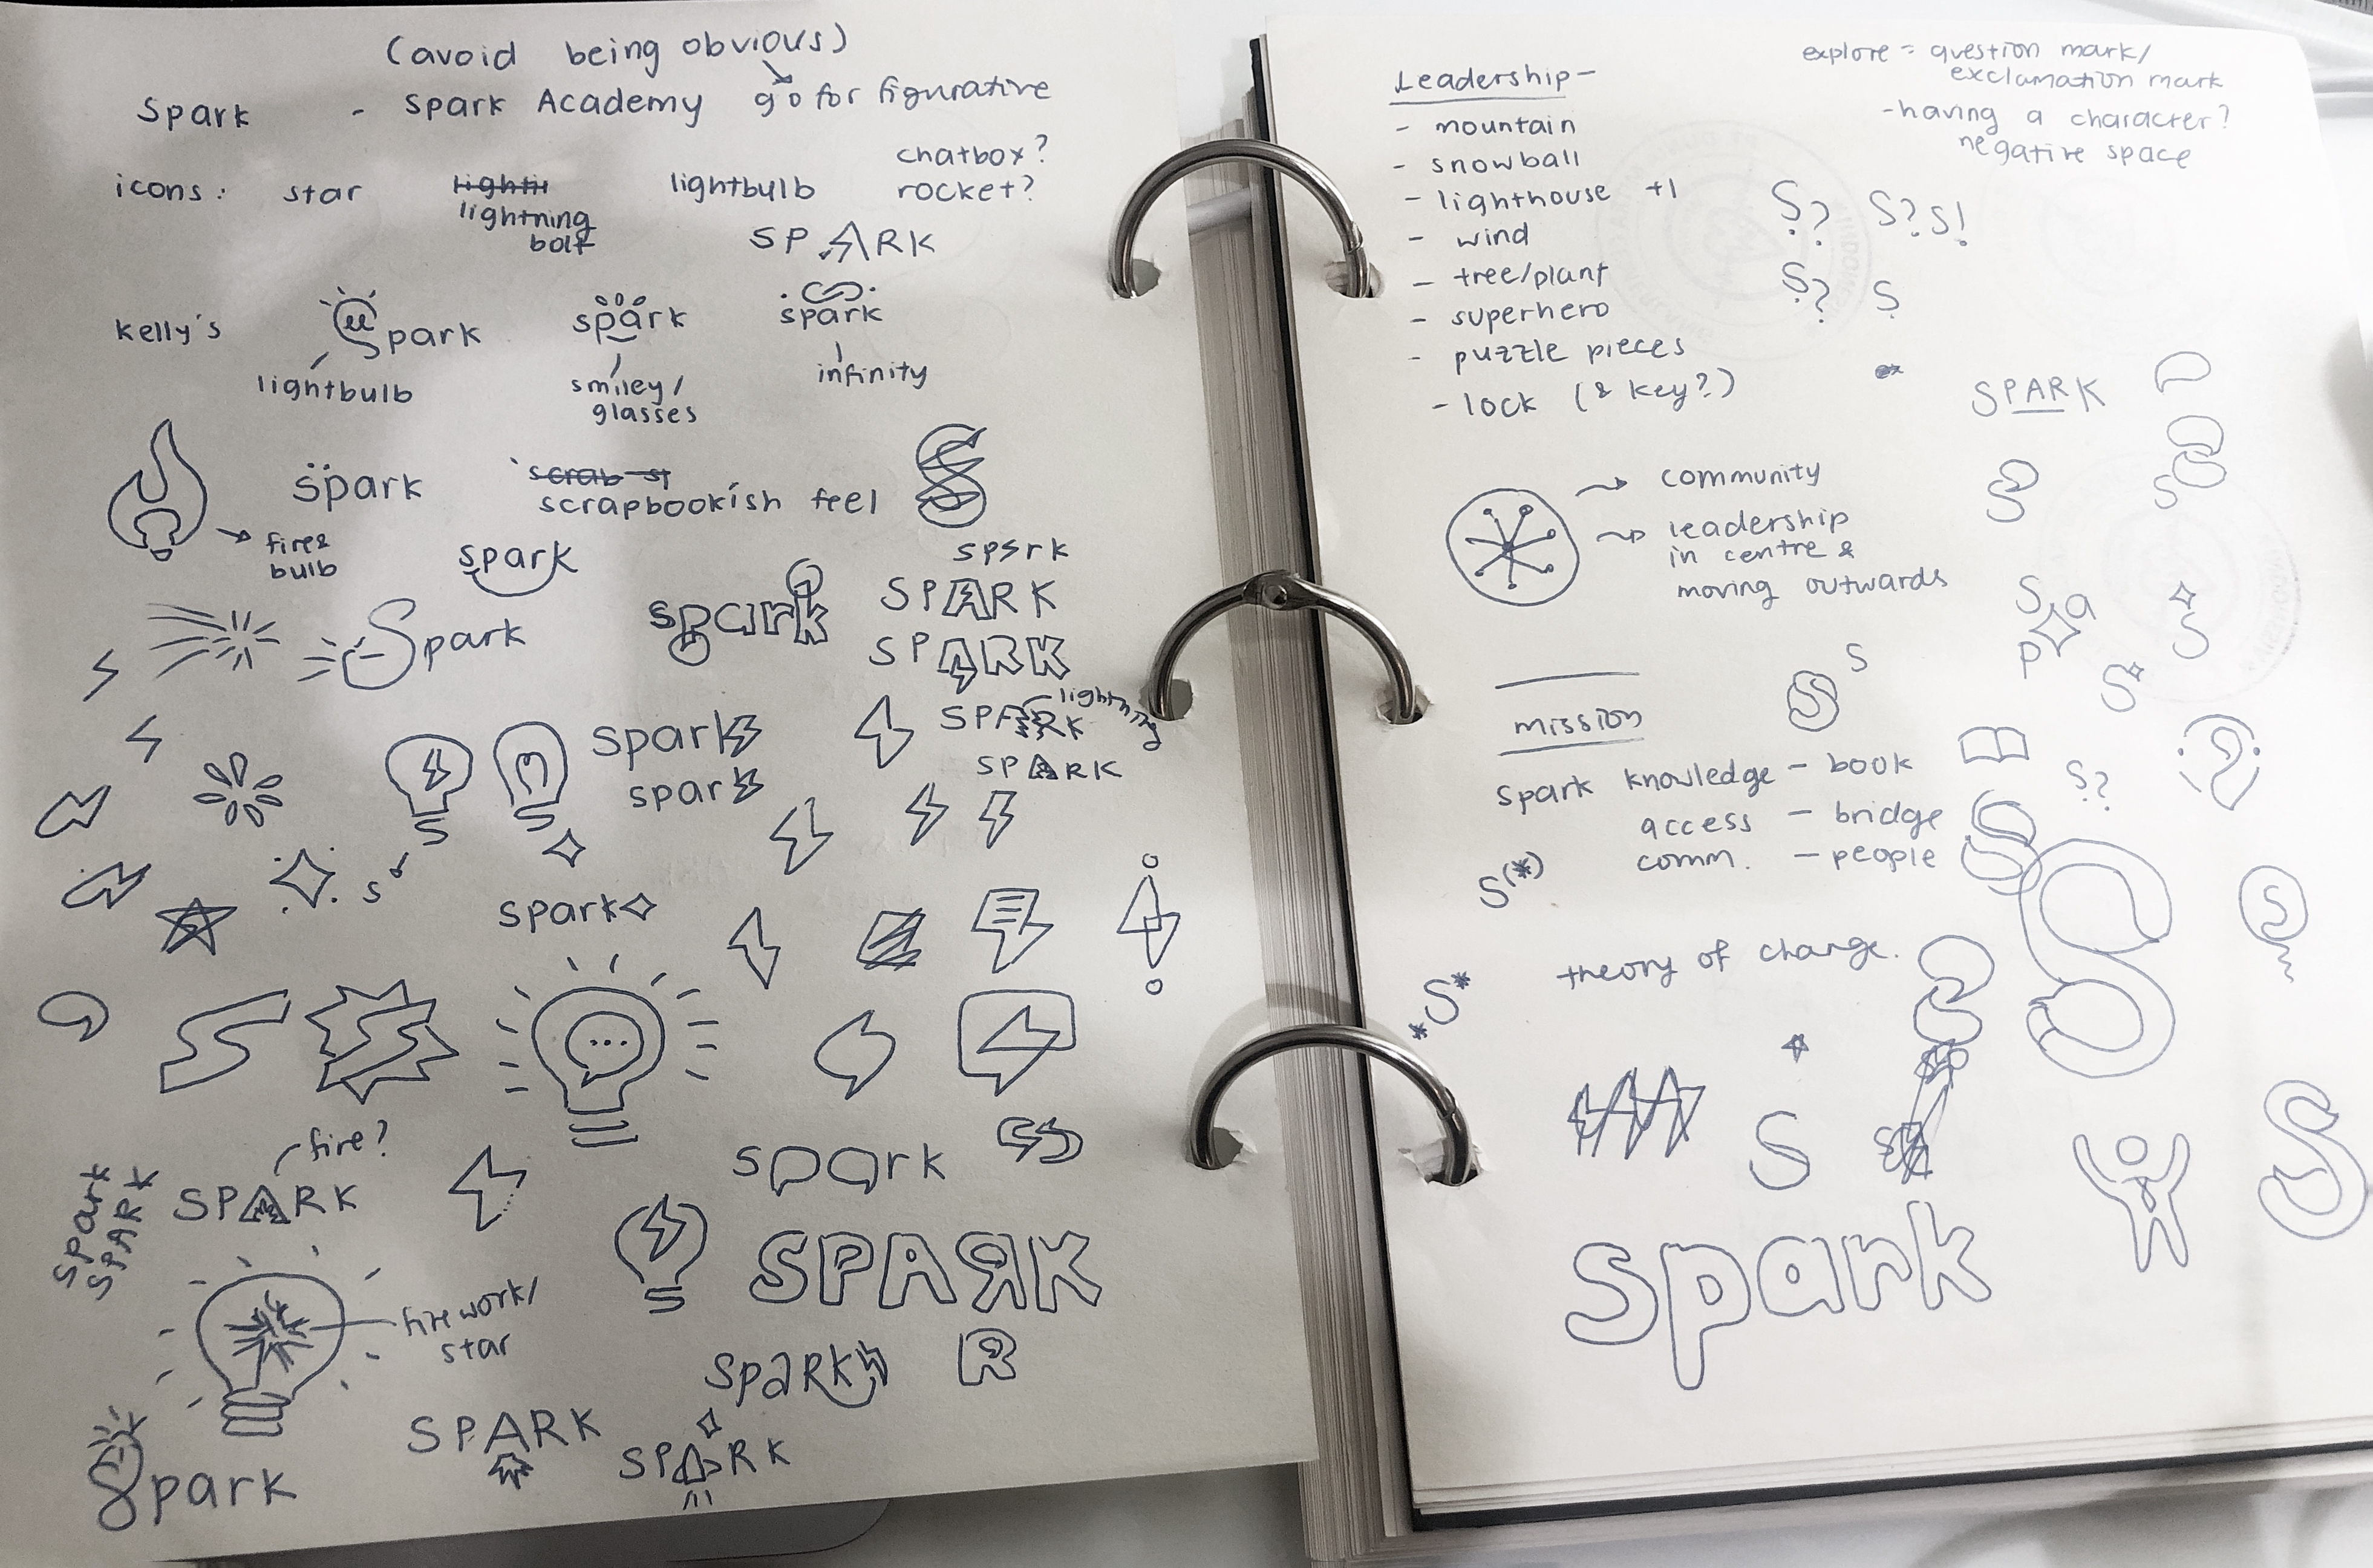 (avoid being obvious)
Spark - Spark Academy go for figurative
chatbox?
icons: star lightning bolt lightbulb rocket?
SPARK
Kelly's
park
spark
spark
lightbulb
smiley/
glasses
infinity
spark
scrapbookish feel
S
fire &
bulb
spark
spsrk
SPARK
Spark
spark
SPARK
lightning
SPARK
spark
spark
SPARK
s
spark
fire?
SPARK
spark
SPARK
spark
SPARK
firework/
star
spark
R
SPARK
SPARK
Spark
Leadership -
- mountain
- snowball
- lighthouse +1
- wind
- tree/plant
- superhero
- puzzle pieces
- lock (& key?)
explore = question mark/
exclamation mark
- having a character?
negative space
S? S? S!
S? S
SPARK
S
S
community
leadership
in centre &
moving outwards
S a
p
S
S
S
S
mission
Spark knowledge - book
access - bridge
comm. - people
S?
S(*)
S
S
theory of change.
*S*
S
S
spark